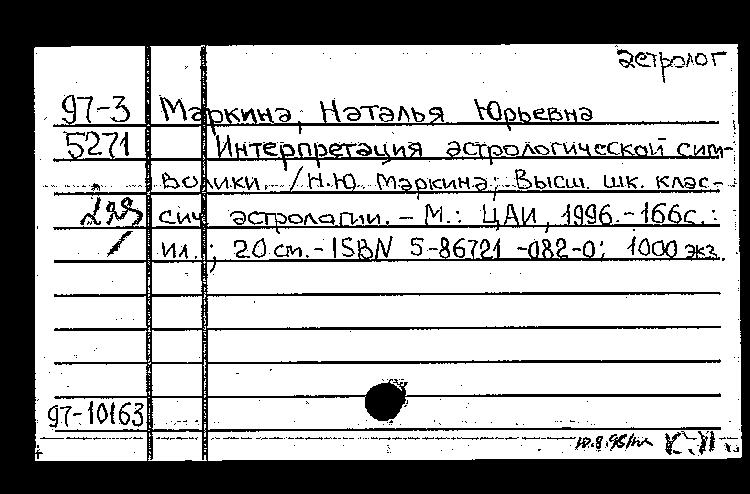 астролог
97-3 Маркина, Наталья Юрьевна
5271 Интерпретация астрологической сим-
волики. / Н.Ю. Маркина; Высш. шк. клас-
сич. астрологии. - М.: ЦАИ, 1996. - 166с.:
ил.; 20 см. - ISBN 5-86721-082-0; 1000 экз.
97-10163